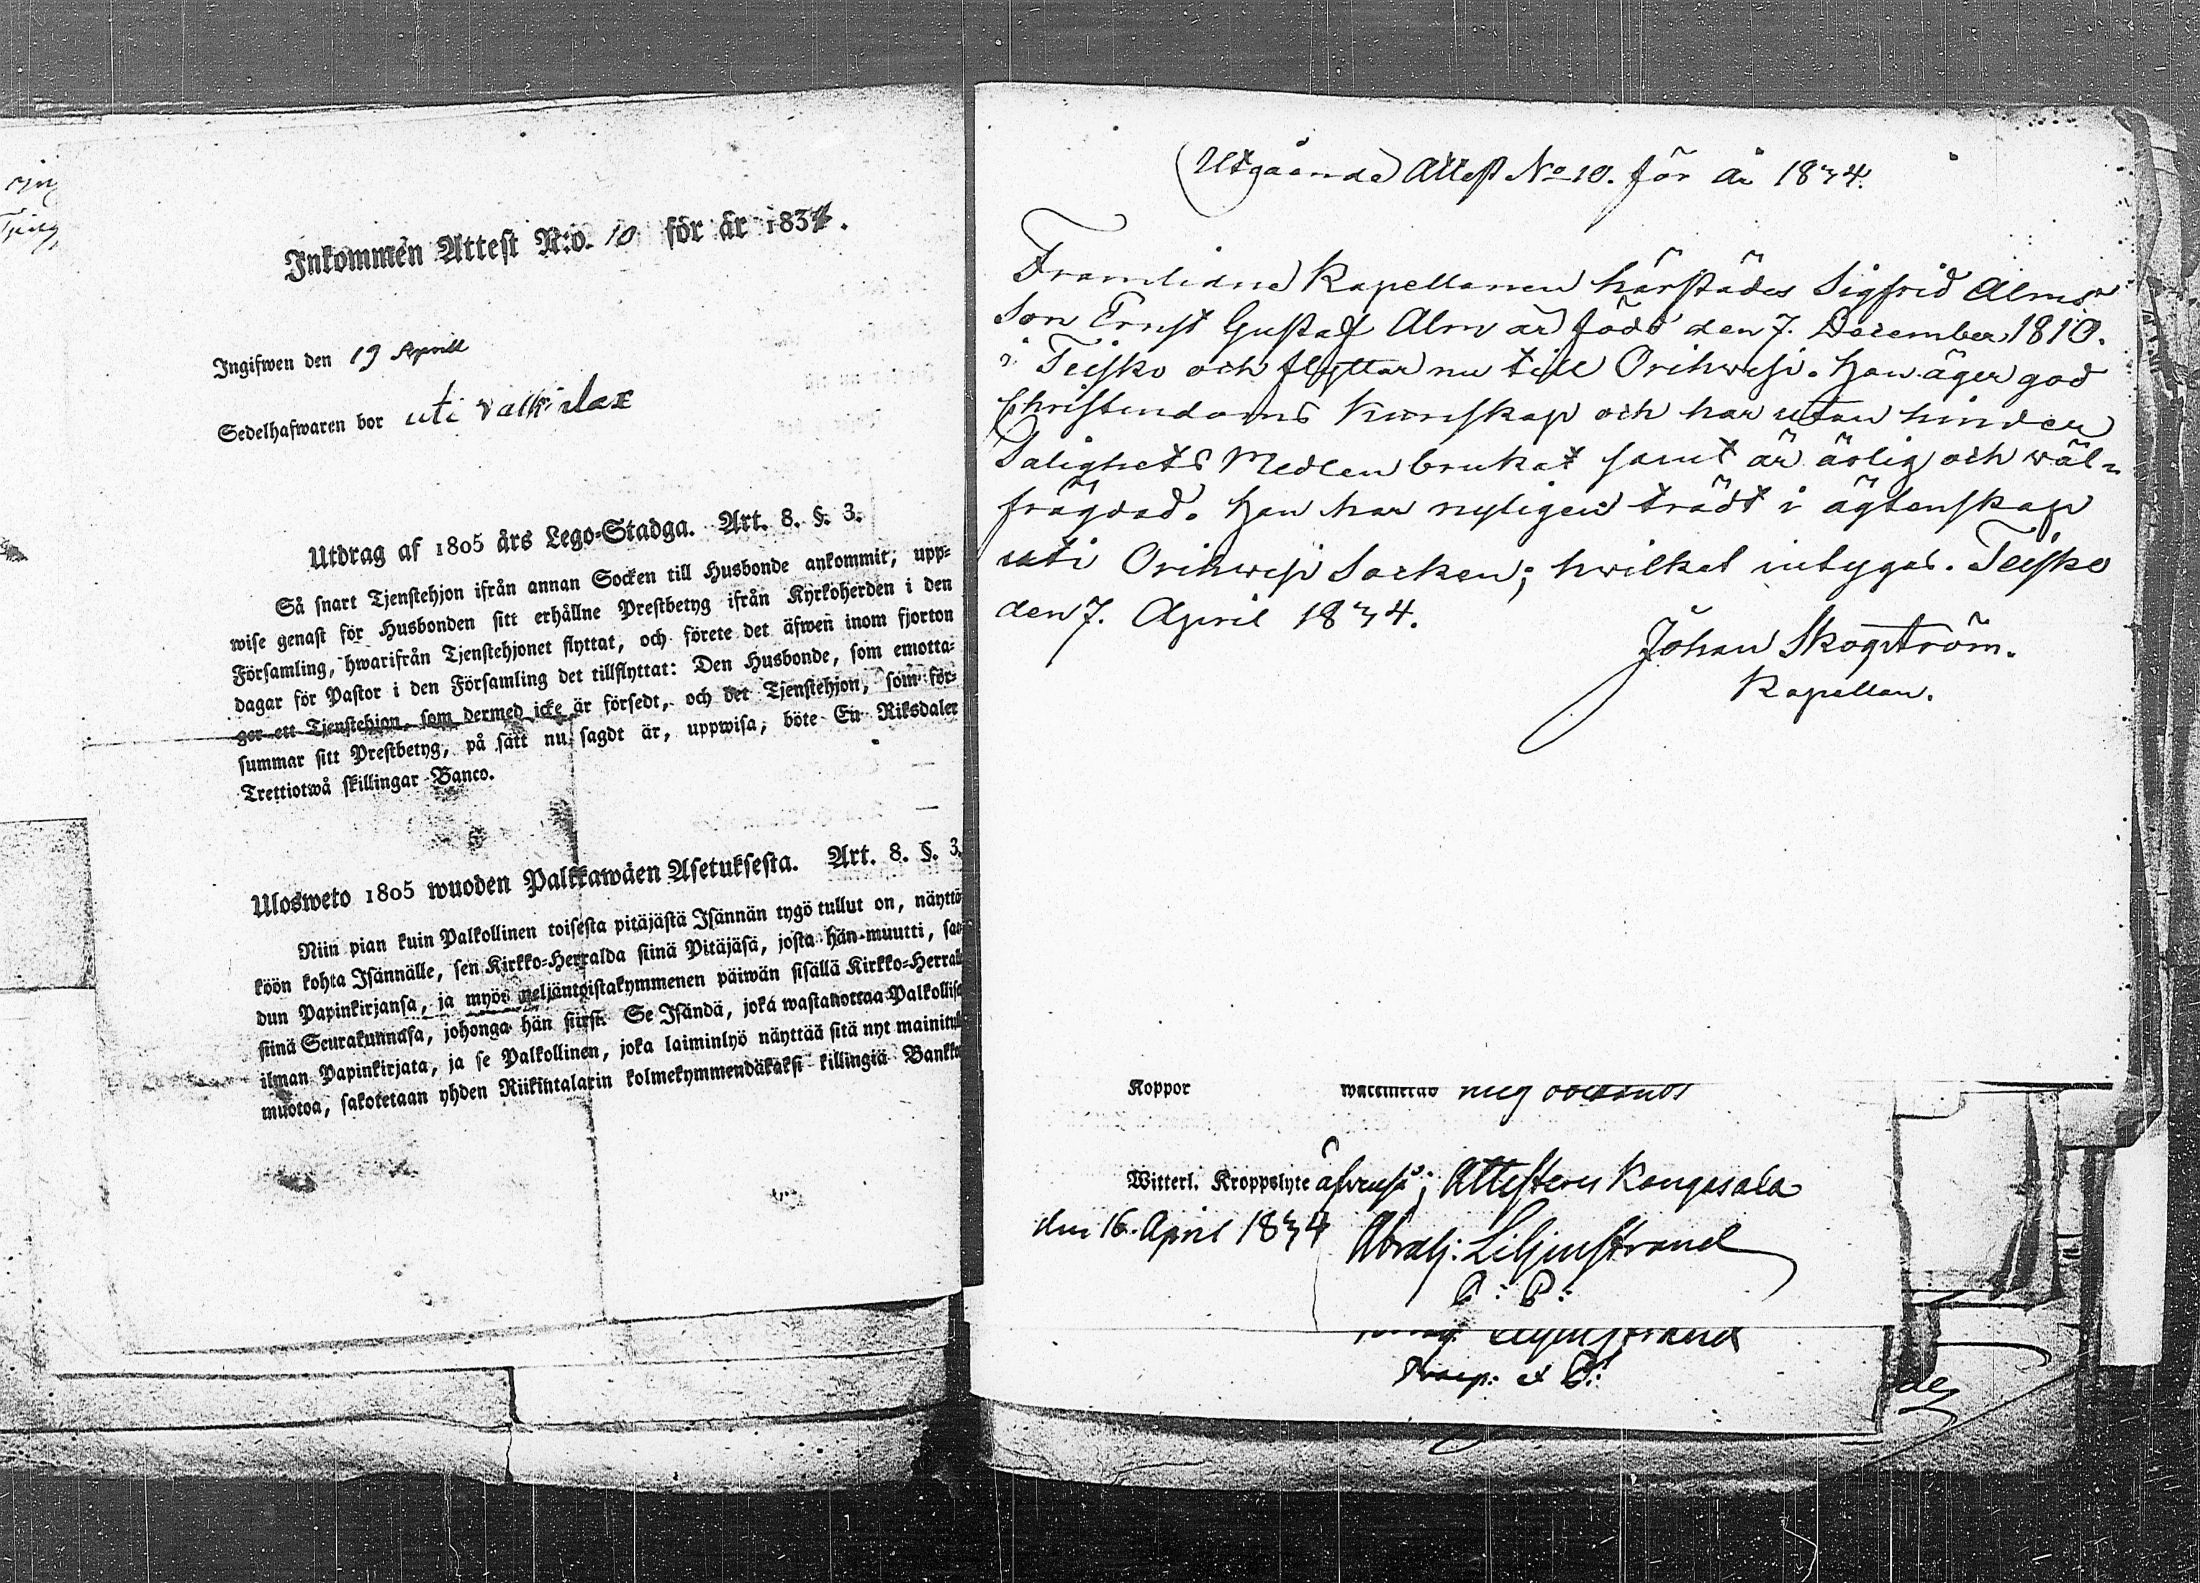 Inkommen Attest N:o. 10 för år 1834.
Ingifwen den 19 Aprill
Sedelhafwaren bor uti
Utdrag af 1805 års Lego-Stadga. Art. 8. §. 3.
Så snart Tjenstehjon ifrån annan Socken till Husbonde ankommit, upp-
wise genast för Husbonden sitt erhållne Prestbetyg ifrån Kyrkoherden i den
Församling, hwarifrån Tjenstehjonet flyttat, och förete det äfwen inom fjorton
dagar för Pastor i den Församling det tillflyttat: Den Husbonde, som emotta-
ger ett Tjenstehjon, som dermed icke är försedt, och det Tjenstehjon, som för-
summar sitt Prestbetyg, på sätt nu sagdt är, uppwisa, böte En Riksdaler
Trettiotwå skillingar Banco.
Ulosweto 1805 wuoden Palkkawäen Asetuksesta. Art. 8. §. 3.
Niin pian kuin Palkollinen toisesta pitäjästä Isännän tygö tullut on, näyttä-
köön kohta Isännälle, sen Kirkko-Herralda siinä Pitäjäsä, josta hän muutti, saa-
dun Papinkirjansa, ja myös neljäntoistakymmenen päiwän sisällä Kirkko-Herral
siinä Seurakunnasa, johonga hän siirsi. Se Isändä, joka wastanottaa Palkollis
ilman Papinkirjata, ja se Palkollinen, joka laiminlyö näyttää sitä nyt mainitul
muotoa, sakotetaan yhden Riikintalarin kolmekymmendäkaksi killingiä Bankk
(Utgående) Attest No 10. för år 1834.
Framlidne Kapellanen härstädes Sigfrid Alms
Son Ernst Gustaf Alm är född den 7. December 1810.
i Teisko och flyttar nu till Orihwesi. Han äger god
Christendoms Kunskap och har utan hinder
Salighets Medlen brukat samt är ärlig och wäl-
frägdad. Han har nyligen trädt i ägtenskap
uti Orihwesi Socken; hwilket intygas. Teisko
den 7. April 1834.
Johan Skogström.
Kapellan.
Koppor
Witterl. Kroppslyte äfwenså; Attesterer Kangasala
den 16. April 1834 Abrah: Liljenstrand
Praep: et P: